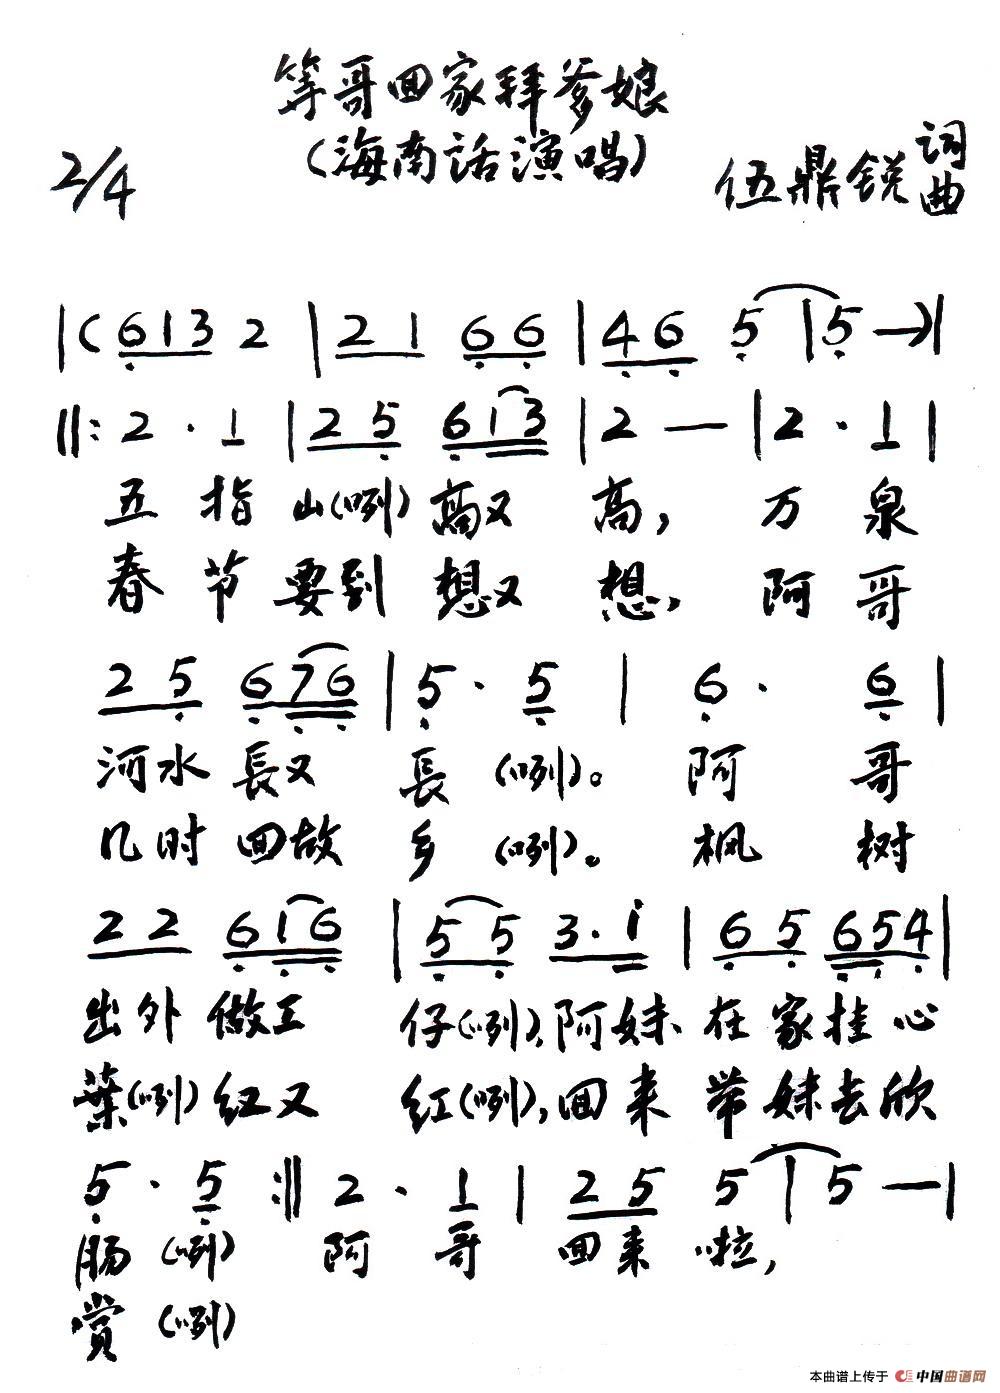 等哥回家拜爹娘
(海南话演唱)
2/4
伍鼎锐 词曲
|(6 1 3 2 | 2 1 6 6 | 4 6 5 | 5 —)|
‖: 2 · 1 | 2 5 6 1 3 | 2 — | 2 · 1 |
五 指 山(咧) 高又 高, 万 泉
春 节 要到 想又 想, 阿 哥
2 5 6 7 6 | 5 · 5 | 6 · 6 |
河水 長又 長 (咧)。 阿 哥
几时 回故 乡 (咧)。 枫 树
2 2 6 1 6 | 5 5 3 · i | 6 5 6 5 4 |
出外 做工 仔(咧), 阿妹 在家挂心
葉(咧)红又 红(咧), 回来 带妹去欣
5 · 5 :‖ 2 · 1 | 2 5 5 | 5 — |
肠 (咧) 阿 哥 回来 啦,
赏 (咧)
本曲谱上传于 中国曲谱网